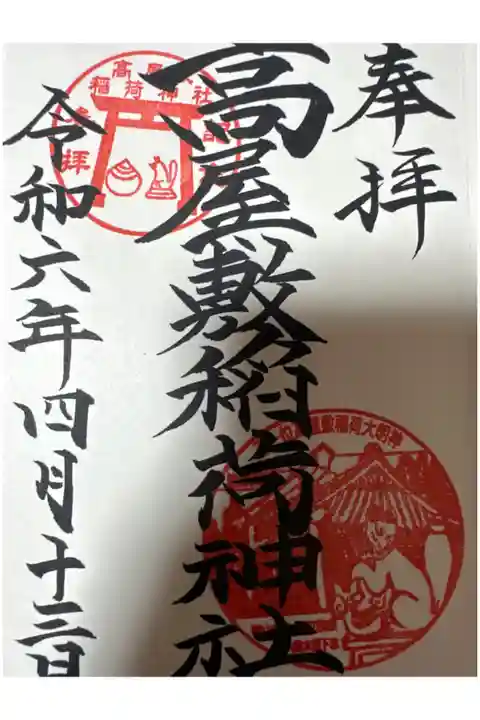 奉拝
高屋敷稲荷神社
令和六年四月十三日
高屋敷
稲荷神社
参拝
記念
屋敷稲荷大明神